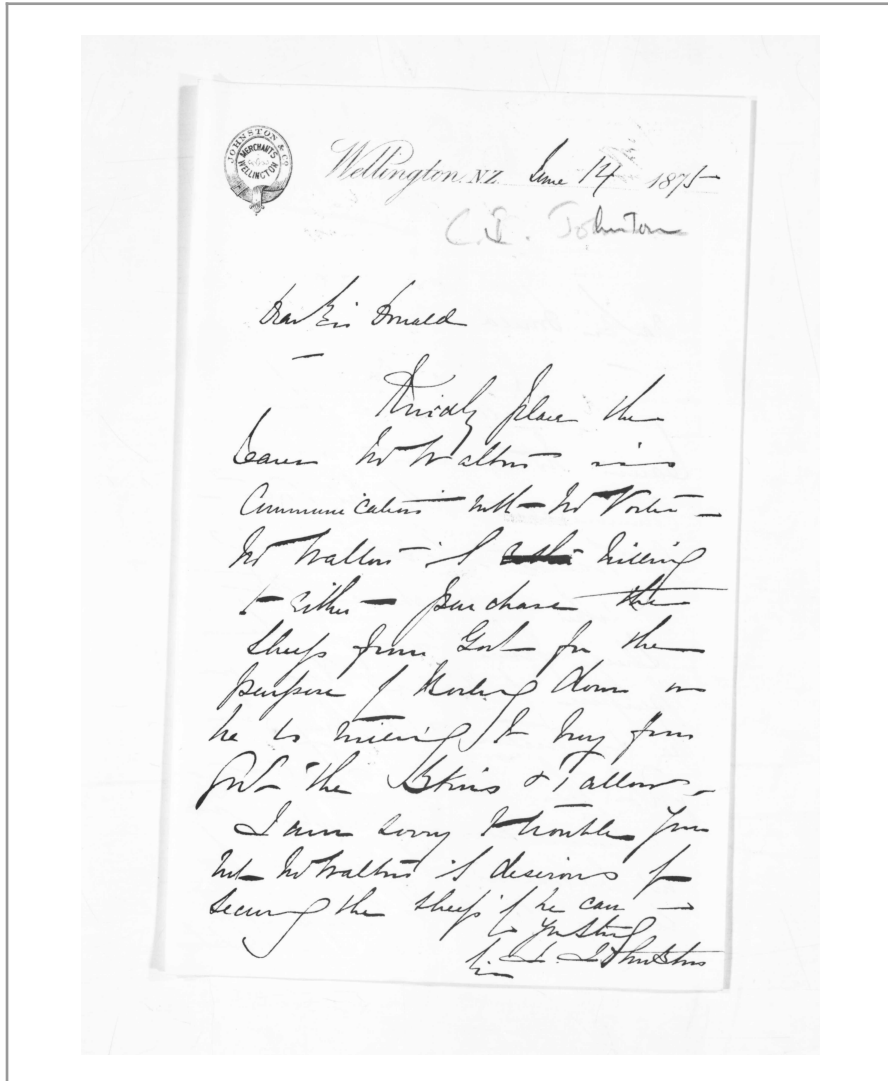 JOHNSTON & Co
MERCHANTS
WELLINGTON
Wellington, NZ. June 14 1875
C. J. Johnston
Dear Sir Donald
Kindly place the
bearer Mr Walters in
Communication with Mr
Mr Walters is willing
to either purchase the
sheep from Govt for the
purpose of boiling down or
he is willing to buy from
Govt the Skins & Tallow
I am sorry to trouble you
but Mr Walters is desirous of
securing the sheep if he can
Yrs truly
Johnston